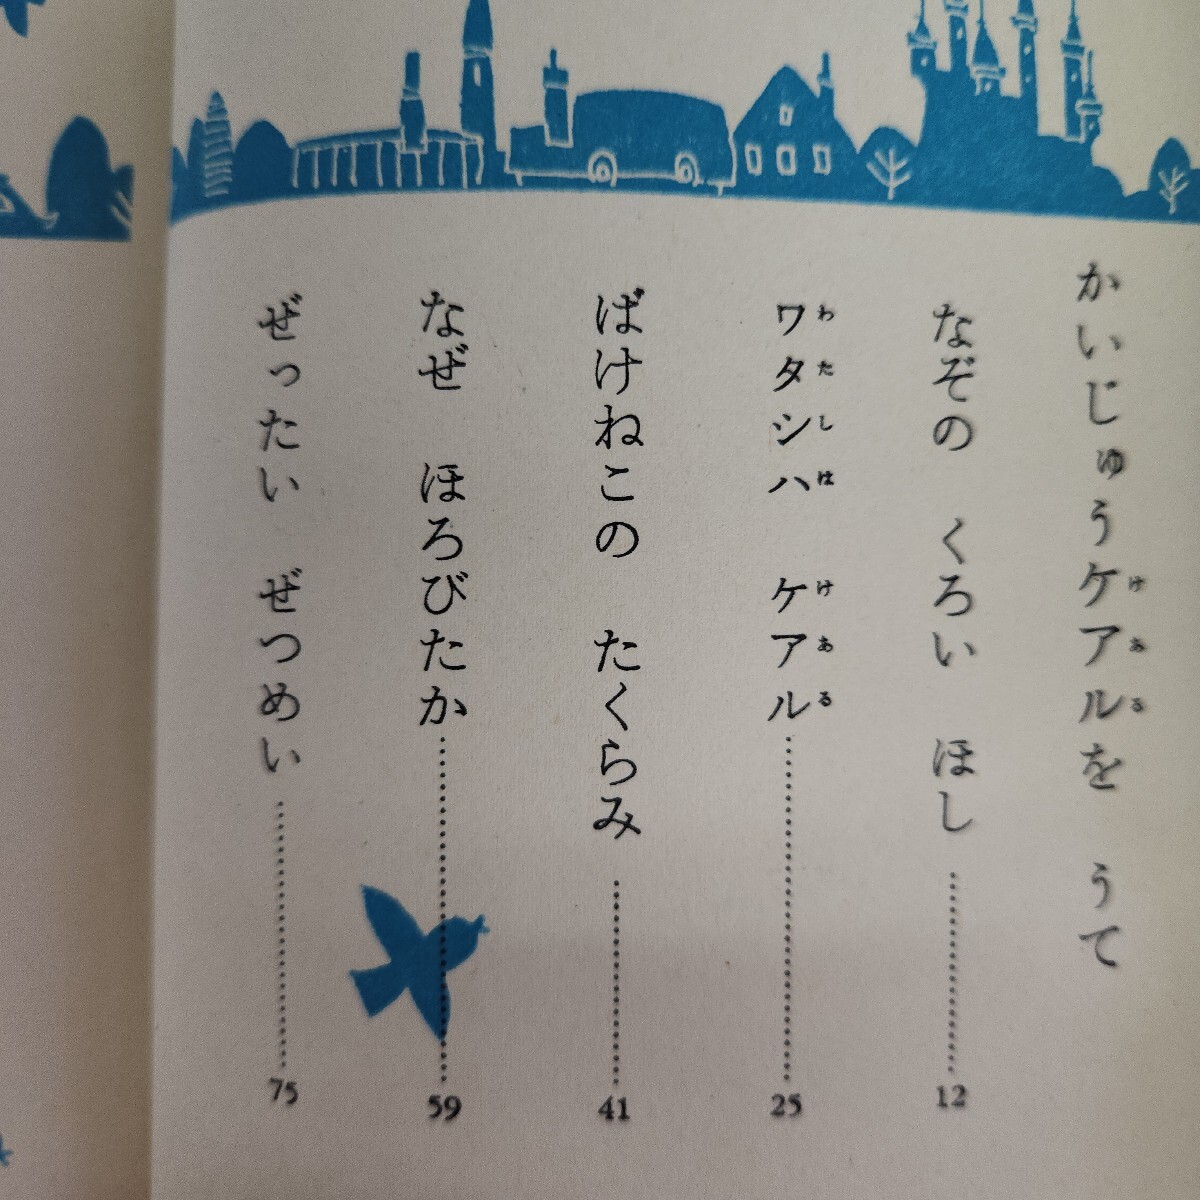 かいじゅうケアルを うて
けある
なぞの くろい ほし……12
ワタシハ ケアル……25
わたしは けある
ばけねこの たくらみ……41
なぜ ほろびたか……59
ぜったい ぜつめい……75